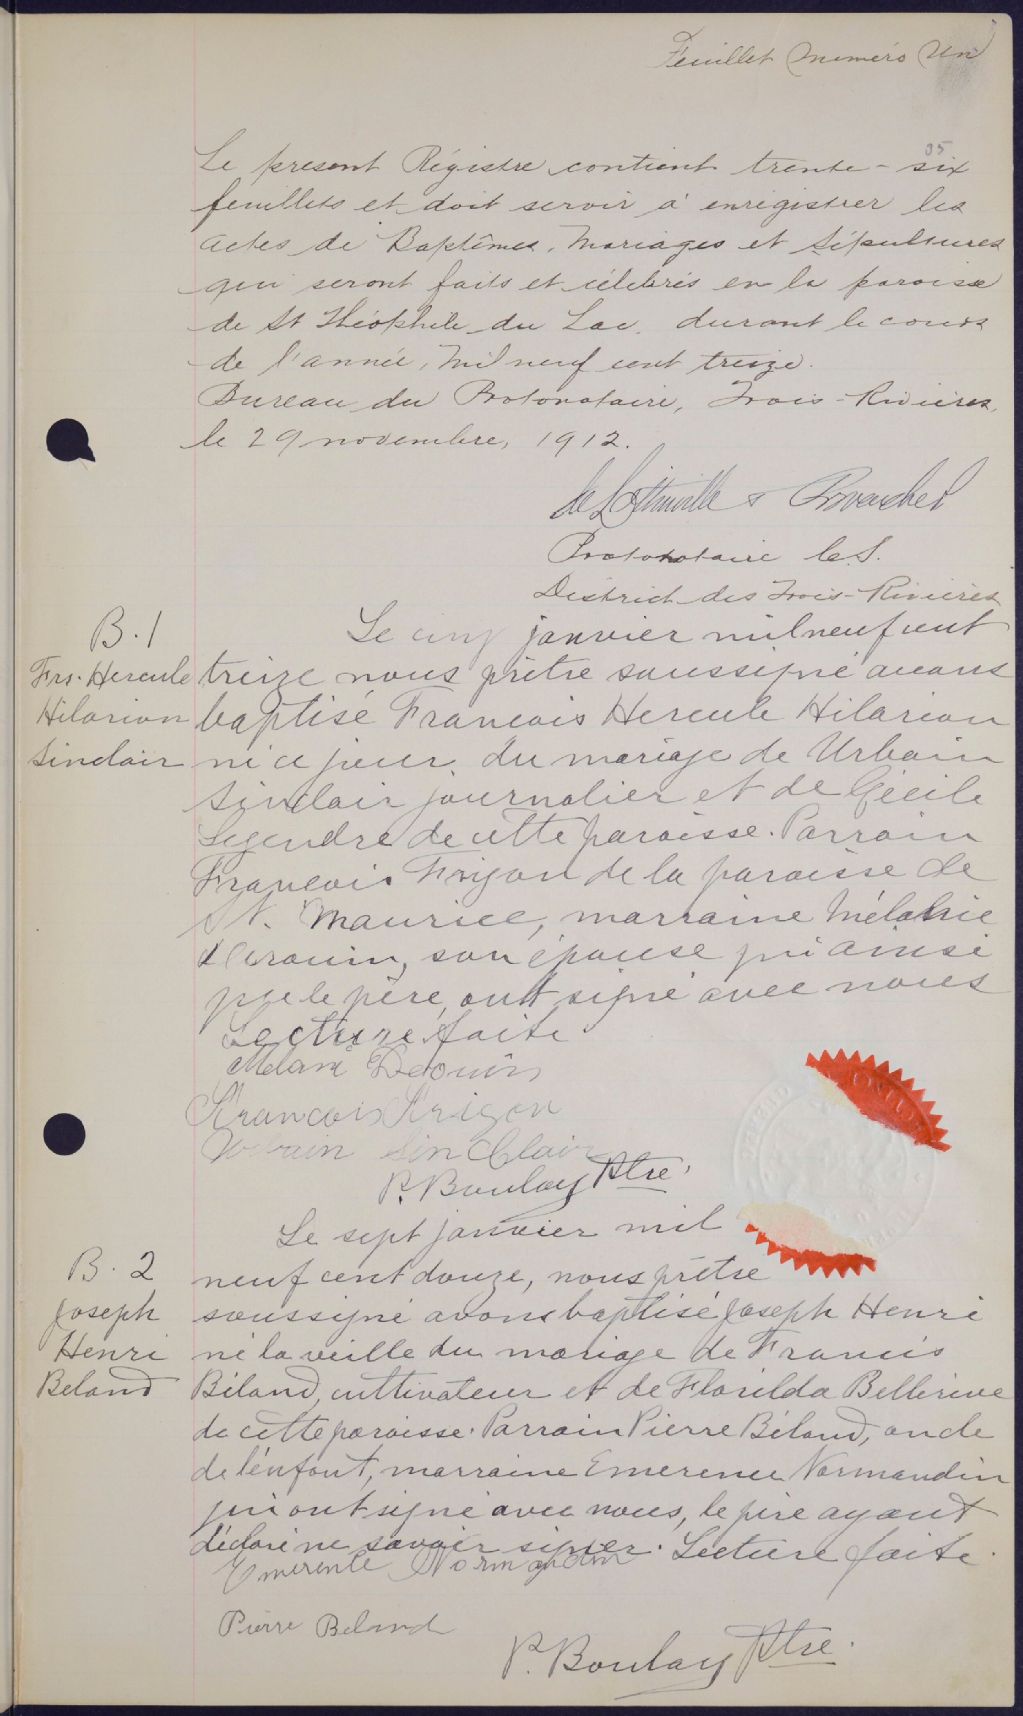 Feuillet numéro Un
35
Le présent Régistre contient trente-six
feuillets et doit servir à enrégistrer les
actes de Baptêmes, Mariages et Sépultures
qui seront faits et célébrés en la paroisse
de St Théophile du Lac, durant le cours
de l'année, mil neuf cent treize.
Bureau du Protonotaire, Trois-Rivières,
le 29 novembre, 1912.
Protonotaire C.S.
District des Trois-Rivières
B.1
Frs. Hercule
Hilarion
Sinclair
Le cinq janvier mil neuf cent
treize nous prêtre soussigné avons
baptisé François Hercule Hilarion
né ce jour, du mariage de Urbain
Sinclair journalier et de Cécile
Legendre de cette paroisse. Parrain
François Frigon de la paroisse de
St. Maurice, marraine Mélanie
son épouse qui ainsi
que le père, ont signé avec nous
Lecture faite
François Frigon
Urbain Sin Clair
P. Boulay Ptre.
B. 2
Joseph
Henri
Beland
Le sept janvier mil
neuf cent douze, nous prêtre
soussigné avons baptisé Joseph Henri
né la veille du mariage de Francis
Béland, cultivateur et de Florilda Bellerive
de cette paroisse. Parrain Pierre Béland, oncle
de l'enfant, marraine Emerence Normandin
qui ont signé avec nous, le père ayant
déclaré ne savoir signer. Lecture faite.
Emerence Normandin
Pierre Beland
P. Boulay Ptre.